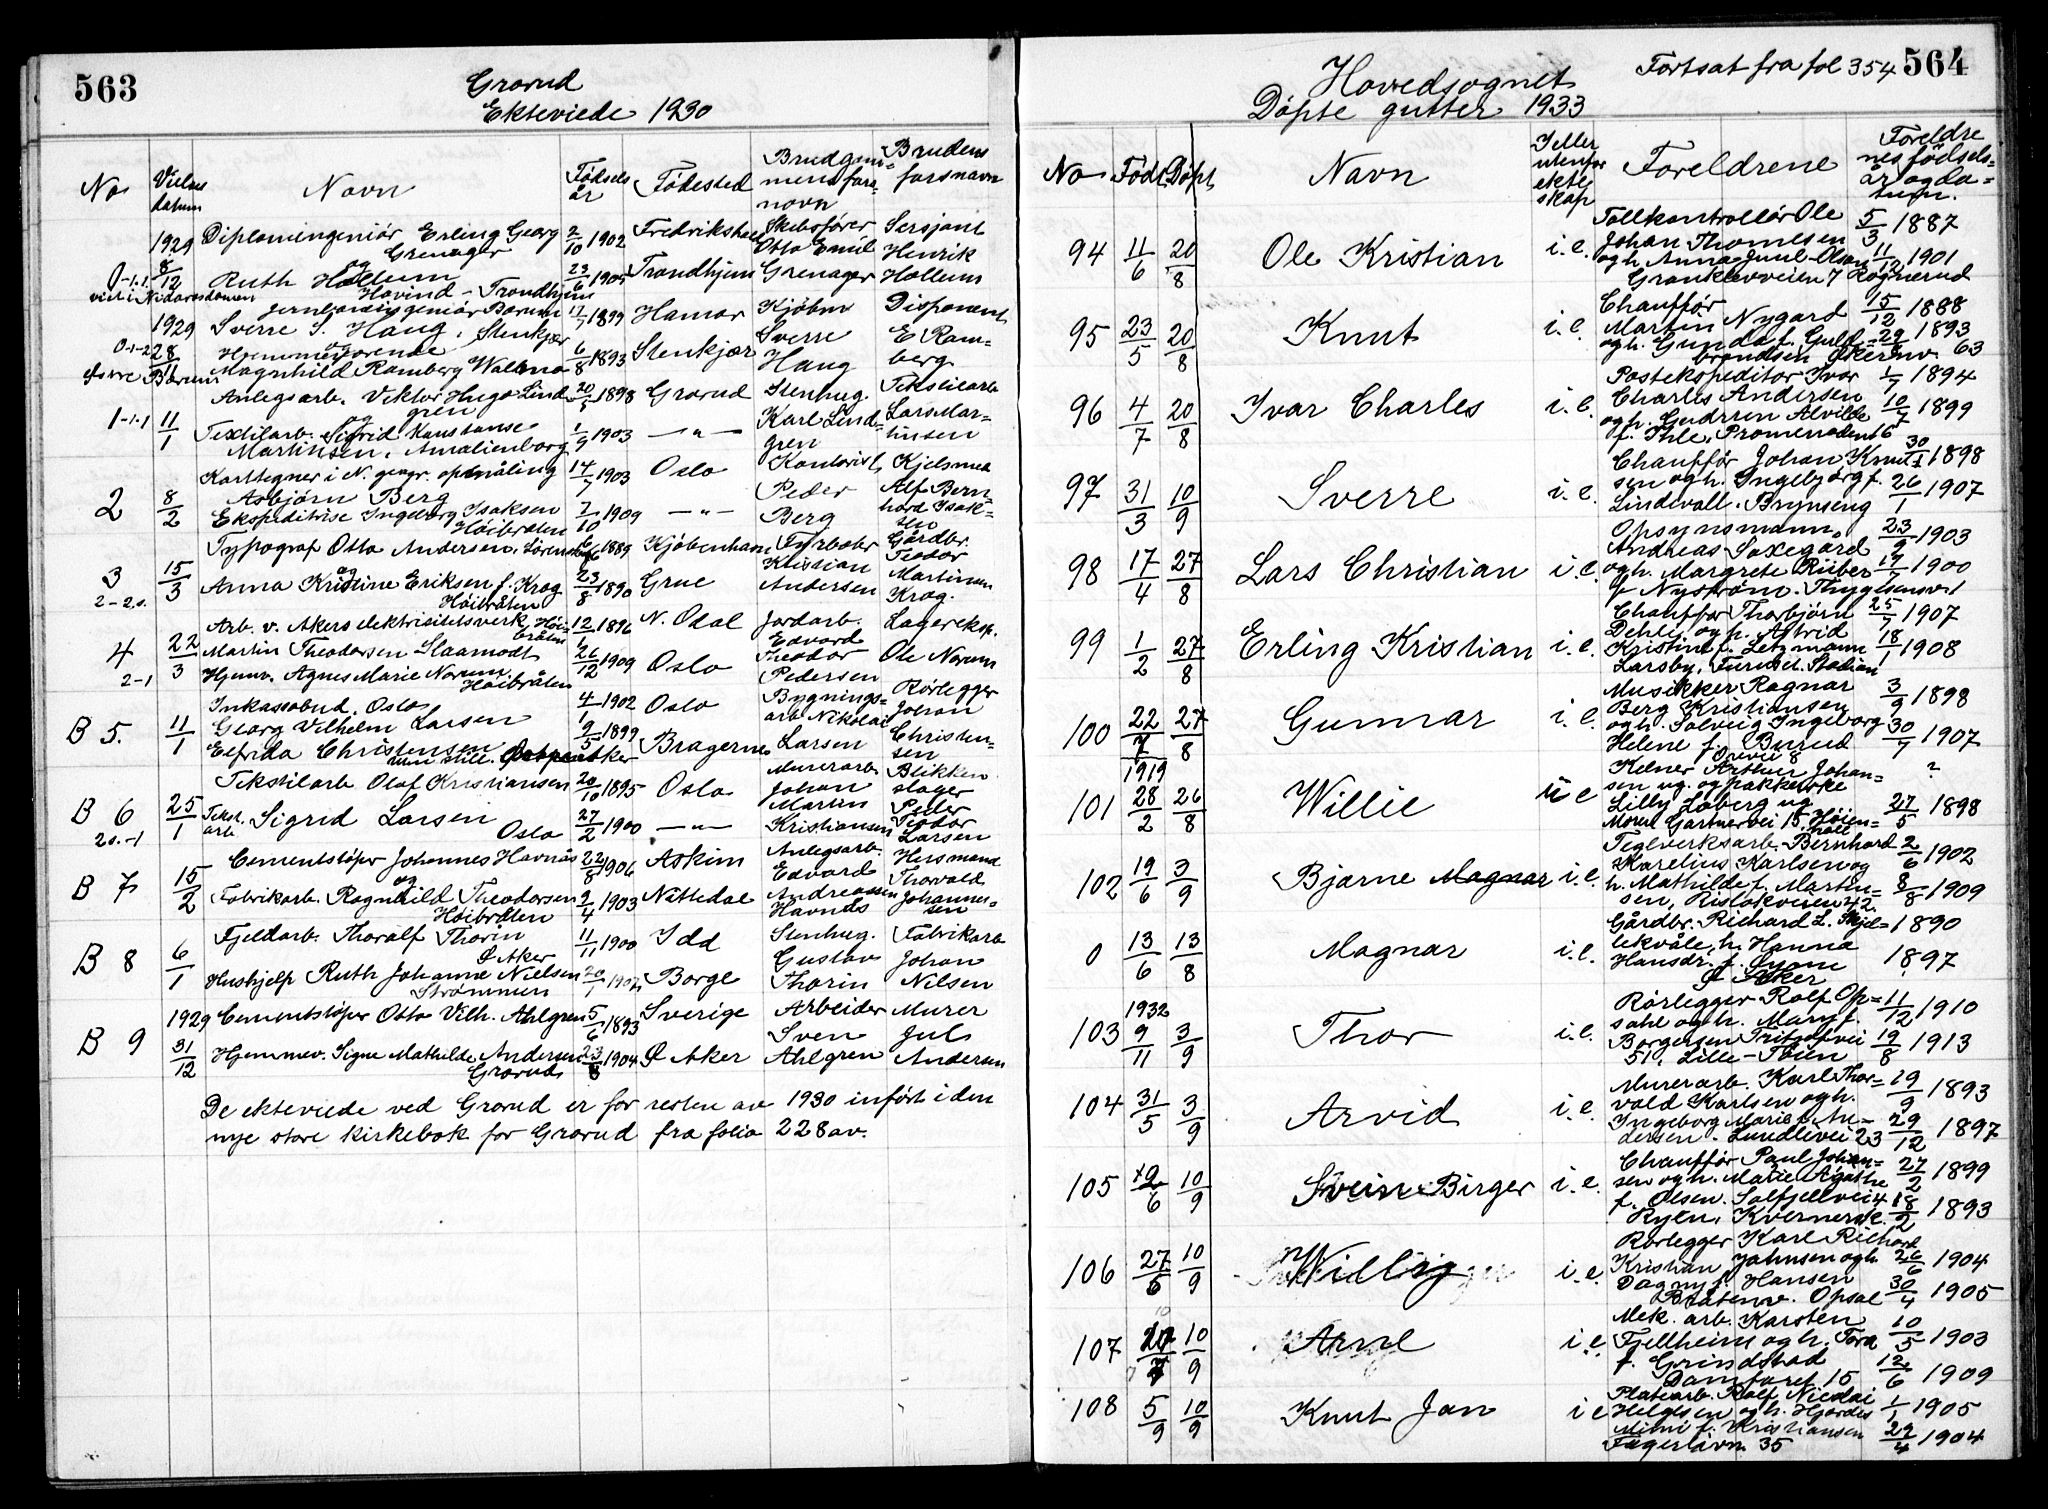 563
Grorud
Ekteviede 1930
No
Vielses datum
Navn
Fødsels år
Fødested
Brudgommens farsnavn
Brudens farsnavn
0-1.1 1929 8/12 Diplomingeniør Erling Georg Grenager 2/10 1902 Fredrikshald Skibsfører Otto Emil Grenager
og
Ruth Hollum 23/6 1905 Trondhjem Sersjant Henrik Hollum
Hovind - Trondhjem
viet i Nidarosdomen
0-1-2 1929 28/11 Jernbaneingeniør Bærum
Sverre S. Haug, Stenkjær 17/7 1899 Hamar Kjøbm Sverre Haug
og
Hjemmeværende
Magnhild Ramberg Walbmo 6/8 1893 Stenkjær Disponent E Ramberg
Østre Bærum
1-1.1 11/1 Anlegsarb. Viktor Hugo Lindgren 20/5 1898 Grorud Stenhug. Karl Lindgren
og
Textilarb. Sigrid Konstanse Martinsen, Amalienborg 1/9 1903 —"— Tekstilarb Lars Martinsen
2 8/2 Karttegner i N. geogr. opmåling Asbjørn Berg 14/7 1903 Oslo Kontorist Peder Berg
Ekspeditrise Ingeborg Isaksen Høibråten 7/10 1909 —"— Kjelsmed Alf Bernhard Isaksen
3 2-2.s. 15/3 Typograf Otto Andersen, Lørenskog 6/6 1889 Kjøbenhavn Fyrbøter Kristian Andersen
og
Anna Kristine Eriksen f. Krog Høibråten 23/8 1890 Grue Gårdbr. Teodor Martinsen Krog.
4 2-1 22/3 Arb. v. Akers elektrisitetsverk, Høibråten
Martin Theodorsen Slaamodt 12/12 1896 N. Odal Jordarb. Edvard Theodor Pedersen
Hjmv. Agnes Marie Norum, Høibråten 26/12 1909 Oslo Lagereksp. Ole Norum
B 5. 11/1 Inkassobud, Oslo
Georg Vilhelm Larsen 4/1 1902 Oslo Bygningsarb Nikolai Larsen
Elfrida Christensen 9/5 1899 Bragernes Rørlegger Johan Christensen
B 6 2s.-1 25/1 Tekstilarb Olaf Kristiansen 20/10 1895 Oslo Murerarb. Johan Martin Kristiansen
Tekst. arb. Sigrid Larsen Oslo 27/2 1900 —"— Blikkenslager Peder Teodor Larsen
B 7 15/2 Cementstøper Johannes Havnås 22/8 1906 Askim Anlegsarb. Edvard Andreassen Havnås
og
Fabrikarb. Ragnhild Theodorsen Høibråten 9/4 1903 Nittedal Husmand Thorvald Johannessen
B 8 6/1 Fjeldarb. Thoralf Thorin Ø Aker 11/11 1900 Idd Stenhug. Gustav Thorin
Hushjelp Ruth Johanne Nielsen Strømmen 20/1 1907 Borge Fabrikarb Johan Nilsen
B 9 1929 31/12 Cementstøper Otto Vilh. Ahlgren 5/6 1893 Sverige Arbeider Sven Ahlgren
Hjemmev. Signe Mathilde Andersen Grorud 23/8 1904 Ø Aker Murer Juls Andersen
De ekteviede ved Grorud er for resten av 1930 inført i den
nye store kirkebok for Grorud fra folio 228 av.
564
Fortsat fra fol 354
Hovedsognet
Døpte gutter 1933
No
Født
Døpt
Navn
I eller utenfor ekteskap
Foreldrene
Foreldrenes fødselsår og datum.
94 11/6 20/8 Ole Kristian i.e. Tollkontrollør Ole Johan Thomesen 5/3 1887
og h. Anna Juul-Olsen 11/12 1901
Granklevveien 7 Rognerud
95 23/5 20/8 Knut i.e. Chauffør Martin Nygard 15/12 1888
og h. Gunda f. Gulbrandsen Økernv. 63 29/8 1893
96 4/7 20/8 Ivar Charles i.e. Postekspeditør Ivar Charles Andersen 1/7 1894
og h. Gudrun Alvilde f. Ihle, Promenaden 16 10/7 1899
97 31/3 10/9 Sverre i.e. Chauffør Johan Knutsen 30/1 1898
og h. Ingebjørg f. Lindevall. Brynseng 26/1 1907
98 17/4 27/8 Lars Christian i.e. Opsynsmann Andreas Saxegård 23/9 1903
og h. Margrete Riiber f. Nystrøm. Thygesensv 1 19/7 1900
99 1/2 27/8 Erling Kristian i.e. Chauffør Thorbjørn Dehli og h. Astrid 25/7 1907
Kristine f. Letzmann Larsby, Furuset Stasjon 18/1 1908
100 22/7 27/8 Gunnar i.e. Musikker Ragnar Berg Kristiansen 3/9 1898
og h. Solveig Ingeborg Helene f. Burud 30/7 1907
101 1919 28/2 26/8 Willie u e Kelner Arthur Johansen ug. og pakkerske ?
Lilly Løberg ug 27/5 1898
102 19/6 3/9 Bjarne Magnar i.e. Teglverksarb. Bernhard Marelius Karlsen og 2/6 1902
h. Mathilde f. Martinsen, Risløkveien 42 8/8 1909
0 13/6 13/8 Magnar i.e. Gårdbr. Richard L. Skjelekvåle, h. Hanna 1890
Hansdr. f. Lyme Ø Aker 1897
103 1932 9/11 3/9 Thor i.e. Rørlegger Rolf Opsahl og h. Mary f. 11/12 1910
Borgersen Fritjofvei 51, Lille-Tøien 19/8 1913
104 31/5 3/9 Arvid i.e. Murerarb. Karl Thorvald Karlsen og h. 19/9 1893
Ingeborg Marie f. Andersen. Lundlivei 23 29/12 1897
105 19/6 10/9 Svein Birger i.e. Chauffør Paul Johansen og h. Marie Agathe 27/2 1899
f. Olsen. Solfjellvei 4 Ryen, Kvernerud. 18/2 1893
106 27/6 10/9 Willy i.e. Rørlegger Karl Richard Kristian Johnsen og h. 26/6 1904
Dagny f. Hansen Bråtenv. Opsal 30/4 1905
107 10/9 Arne i.e. Mek. arb. Karsten Fjellheim og h. Tora 10/5 1903
f. Grindstad Damfaret 15 12/6 1909
108 5/9 10/9 Knut Jan i e Platearb. Rolf Nicolai Helgesen og h. Hjørdis 1/1 1905
Mimi f. Kristiansen Fagerlivn 35 22/4 1904